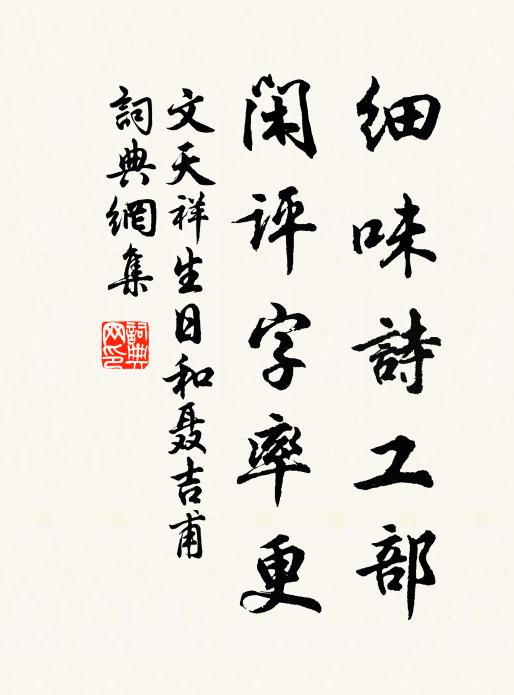 細味詩工部
閑評字率更
文天祥生日和聶吉甫
詞典網集
詞典网印